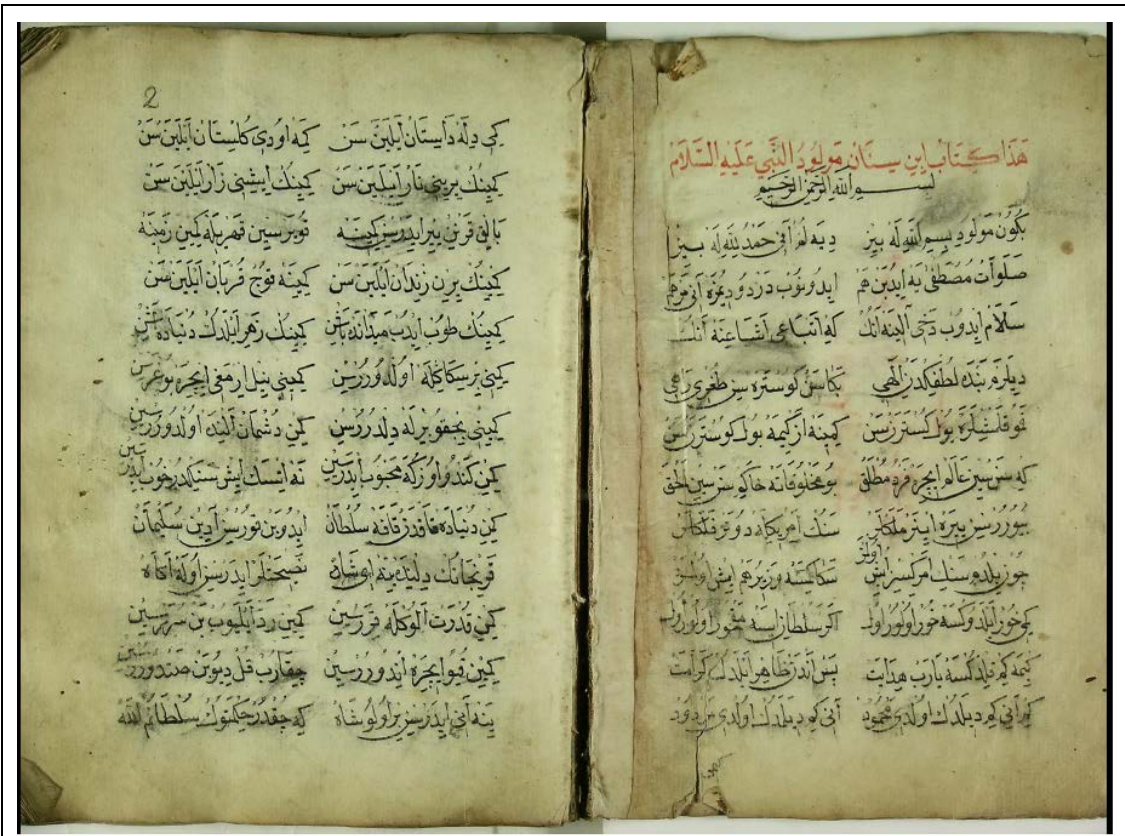 هَذَا كِتَابِ اِبنِ سِينَان مَولُودُ النَّبِي عَلَيْهِ السَّلَامْ
بسم الله الرحمن الرحيم
بكون مولود بسم الله له بيز ديه لم آنى حمد لله له بيز
صلوات مصطفى يه ايدبن هم ايدونوب دردوديمزه آنى مرهم
سلام ايدوب دخى آلينه آنك كه اتباعى اشياعنه آنك
ديلرم بنده لطفكدن الهى بكا سن كوستره سن طغرى راهى
قمو قلشلره يول كسترسن كمينه ازكيمه يول كوسترسن
كه سن سين عالم ايچره فرد مطلق بو مخلوقاته خاكم سن سين الحق
بيوررسن ييره اينر ملكلر سنك امريكله دونر فلكلر
چون بلدم سنك امركسز ايش اولمز سكا كيمسه وزير هم ايش اولمز
كمى خور ايلدوكسه خور اولور اول اكر سلطان ايسه خور اولور اول
كيمه كم قيلدكسه يارب هدايت بس آندن ظاهر ايلدك كرامت
كم آنى كم ديلدك اولدى محمود آنى كم ديلدك اولدى مردود
2
كمى دله داستان ايلين سن كيمه اودى كلستان ايلين سن
كمينك يرينى نار ايلين سن كمينك ايشنى زار ايلين سن
بالق قرنن يير ايدرسن كمينه قويرسين قهريله كمين زمينه
كمينك يرن زندان ايلين سن كمينه قوچ قربان ايلين سن
كمينك طوب ايدب ميدانده باشن كمينك زهر ايلدك دنياده آشن
كمينى بر سكاكله اولدوررسن كمينى نيل ارمغى ايچره بوغرسن
كمينى يعقوب برله دلدررسن كمن دشمان النده اولدوررسين
كمن كندو اوزكه محبوب ايدرسين نه ايسك ايش سنكدر خوب ايدرسين
كمن دنياده قافدن قافه سلطان ايدوبن قورسن آدين سليمان
قرنجانك دلينه ينه اى شاه نصيحتلر ايدرسن اوله آكاه
كمن قدرت الوكله قررسين كمين رد ايليوب بن سررسين
كمين قيو ايچره ايندوررسين چقارب قل ديوبن صتدوررسين
ينه آنى ايدرسن بر اولو شاه كه چقدر حكمتوك سلطانم الله